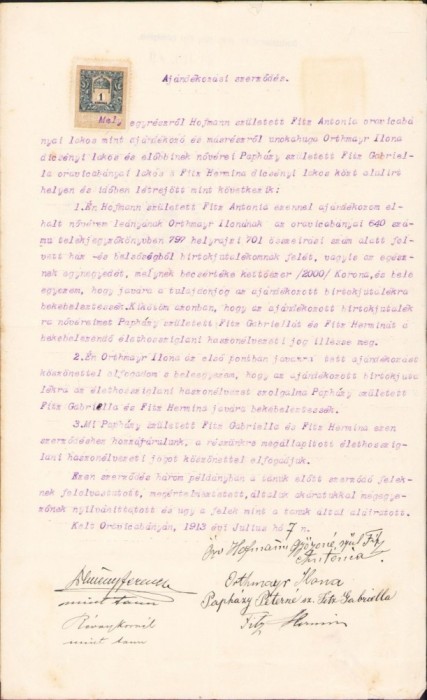 Ajándékozási szerződés.
1
Mely egyrészről Hofmann született Fitz Antonia oraviczabá
nyai lakos mint ajándékozó és másrészről unokahuga Orthmayr Ilona
dicsényi lakos és előbbinek nővérei Papházy született Fitz Gabriel-
la oraviczabányai lakos s Fitz Hermina dicsényi lakos közt alulirt
helyen és időben létrejött mint következik:
1.Én Hofmann született Fitz Antonia ezennel ajándékozom el-
halt nővérem leányának Orthmayr Ilonának az oraviczabányai 640 szá-
mu telekjegyzőkönyvben 797 helyrajzi 701 összeirási szám alatt fel-
vett ház -és belsőségből birtokjutalékomnak felét, vagyis az egész-
nek egynegyedét, melynek becsértéke kettőezer /2000/ Korona, és bele
egyezem, hogy javára a tulajdonjog az ajándékozott birtokjutalékra
bekebeleztessék. Kikötöm azonban, hogy az ajándékozott birtokjutalék
ra nővéreimet Papházy született Fitz Gabriellát és Fitz Herminát a
bekebelezendő élethossziglani haszonélvezeti jog illesse meg.
2.Én Orthmayr Ilona az első pontban javamra tett ajándékozást
köszönettel elfogadom s beleegyezem, hogy az ajándékozott birtokjuta
lékra az élethossziglani haszonélvezet szolgalma Papházy született
Fitz Gabriella és Fitz Hermina javára bekebeleztessék.
3.Mi Papházy született Fitz Gabriella és Fitz Hermina ezen
szerződéshez hozzájárulunk, a részünkre megállapított élethosszig-
lani haszonélvezeti jogot köszönettel elfogadjuk.
Ezen szerződés három példányban a tanuk előtt szerződő felek-
nek felolvastatott, megértelmeztetett, általuk akaratukkal megegye-
zőnek nyilvánittatott és ugy a felek mint a tanuk által aláiratott.
Kelt Oraviczabányán, 1913 évi Julius hó 7 n.
Hofmann Győzőné szül Fitz
Antónia
Orthmayr Ilona
mint tanu
Papházy Péterné sz. Fitz Gabriella
Fitz Hermin
mint tanu